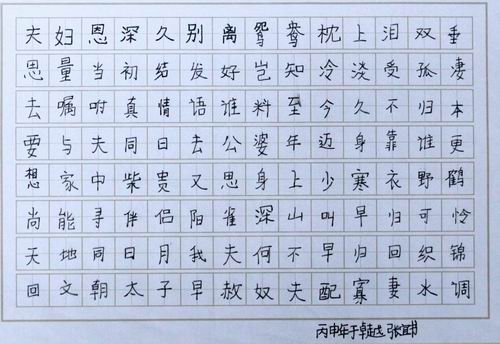 夫妇恩深久别离鸳鸯枕上泪双垂
思量当初结发好岂知冷淡受孤凄
去嘱咐真情语谁料至今久不归本
要与夫同日去公婆年迈身靠谁更
想家中柴贵又思身上少寒衣野鹤
尚能寻伴侣阳雀深山叫早归可怜
天地同日月我夫何不早归回织锦
回文朝太子早赦奴夫配寡妻水调
丙申年于卓越